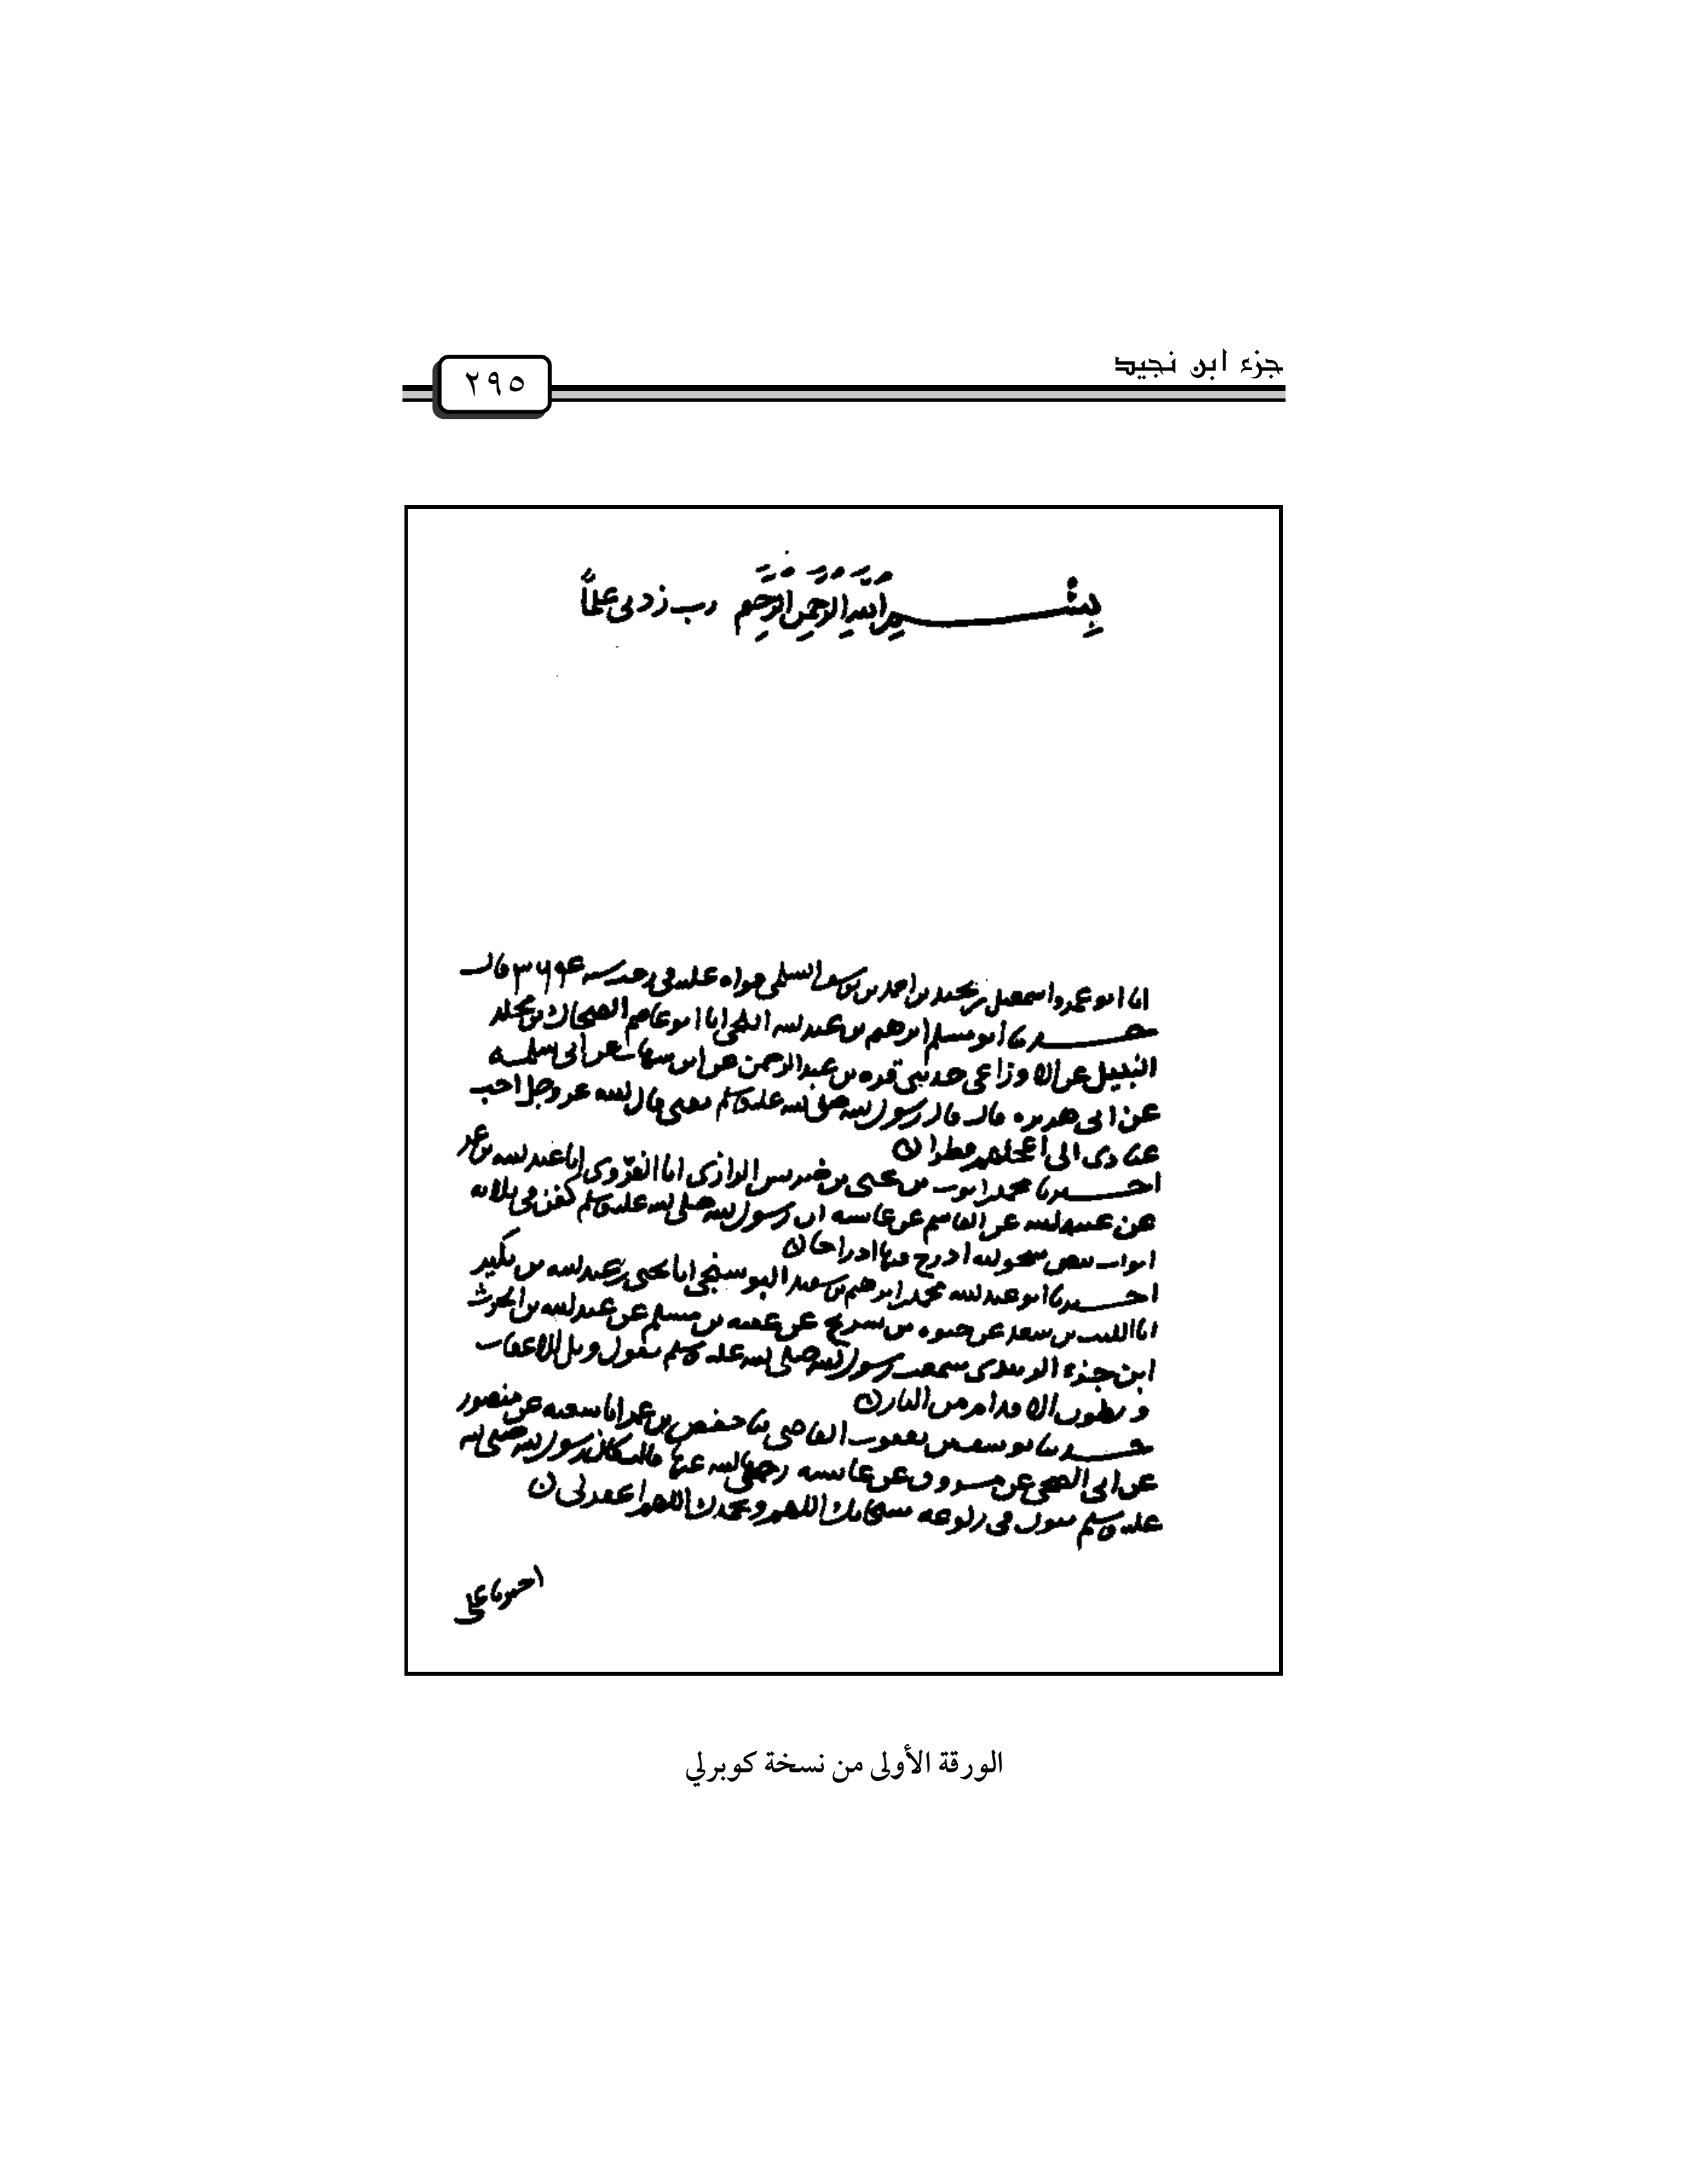 جزء ابن نجيد
٢٩٥
بسم الله الرحمن الرحيم رب زدني علما
انا ابو عمرو اسمعيل بن نجيد بن احمد بن يوسف السلمي قراه عليه في سنه قال
حدثنا ابو مسلم ابرهيم بن عبد الله انا ابو عاصم الضحاك بن مخلد
النبيل عن الاوزاعي حدثني قره بن عبد الرحمن عن ابن شهاب عن ابي سلمه
عن ابي هريره قال قال رسول الله صلى الله عليه وسلم يعني قال الله عز وجل احب
عبادي الي اعجلهم فطرا
اخبرنا محمد بن ايوب بن يحيى بن ضريس الرازي انا عبد الله بن عمر
عن عبيد الله عن القاسم عن عايشه ان رسول الله صلى الله عليه وسلم كفن في ثلاثه
اثواب بيض سحوليه ادرج فيها ادراجا
اخبرنا ابو عبد الله محمد بن ابرهيم بن سعيد البوسنجي انا يحيى بن عبد الله بن بكير
انا الليث بن سعد عن حيوه بن شريح عن عقبه بن مسلم عن عبد الله بن الحرث
ابن جزء الزبيدي سمعت رسول الله صلى الله عليه وسلم يقول ويل للاعقاب
وبطون الاقدام من النار
حدثنا يوسف بن يعقوب القاضي ثنا حفص بن عمر انا شعبه عن منصور
عن ابي الضحى عن مسروق عن عايشه رضي الله عنها قالت كان رسول الله صلى الله
عليه وسلم يقول في ركوعه سبحانك اللهم وبحمدك اللهم اغفر لي
اخبرنا علي
الورقة الأولى من نسخة كوبرلي